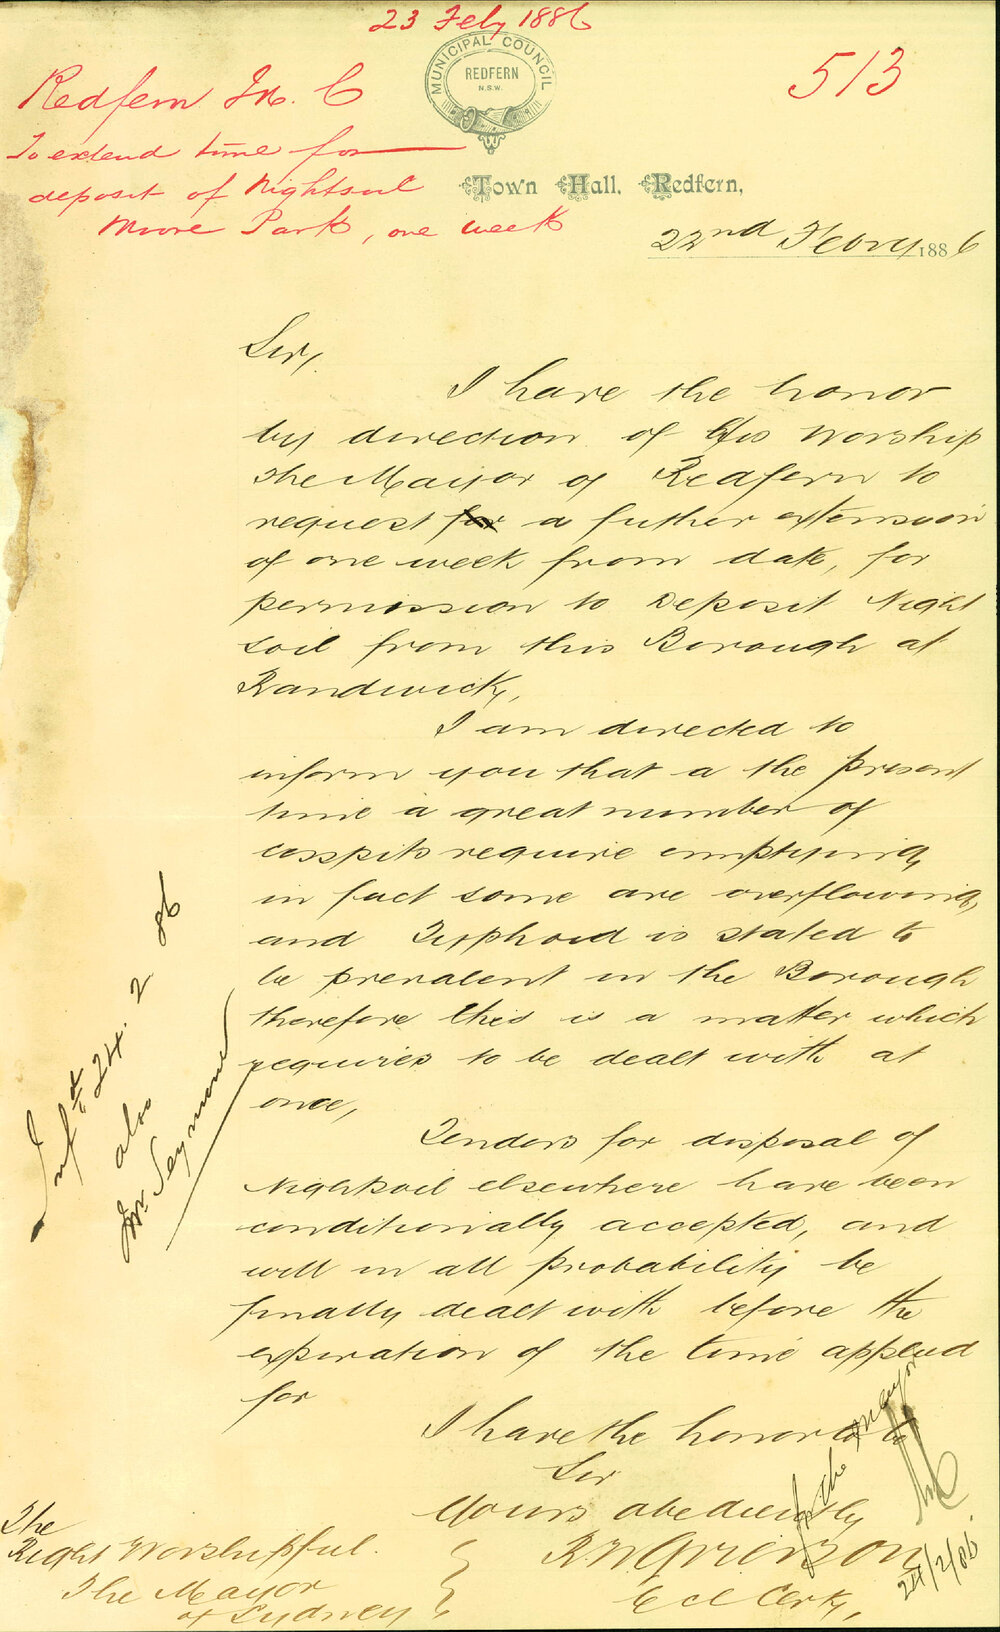 23 Feby 1886
MUNICIPAL COUNCIL
REDFERN
N.S.W.
513
Redfern M. C
To extend time for
deposit of Nightsoil
Moore Park, one week
Town Hall, Redfern,
22nd Febry 1886
Sir,
I have the honor
by direction of His Worship
the Mayor of Redfern to
request for a futher extension
of one week from date, for
permission to Deposit Night
soil from this Borough at
Randwick,
I am directed to
inform you that a the present
time a great number of
cesspits require emptying,
in fact some are overflowing,
and Typhoid is stated to
be prevalent in the Borough
therefore this is a matter which
requires to be dealt with at
once,
Tenders for disposal of
Nightsoil elsewhere have been
conditionally accepted, and
will in all probability be
finally dealt with before the
expiration of the time applied
for
I have the honor to be
Sir
Yours obediently
Cl Clerk,
The
Right Worshipful.
The Mayor
of Sydney
Infd 24. 2 86
also
Mr. Seymour
for the Mayor
24/2/86.